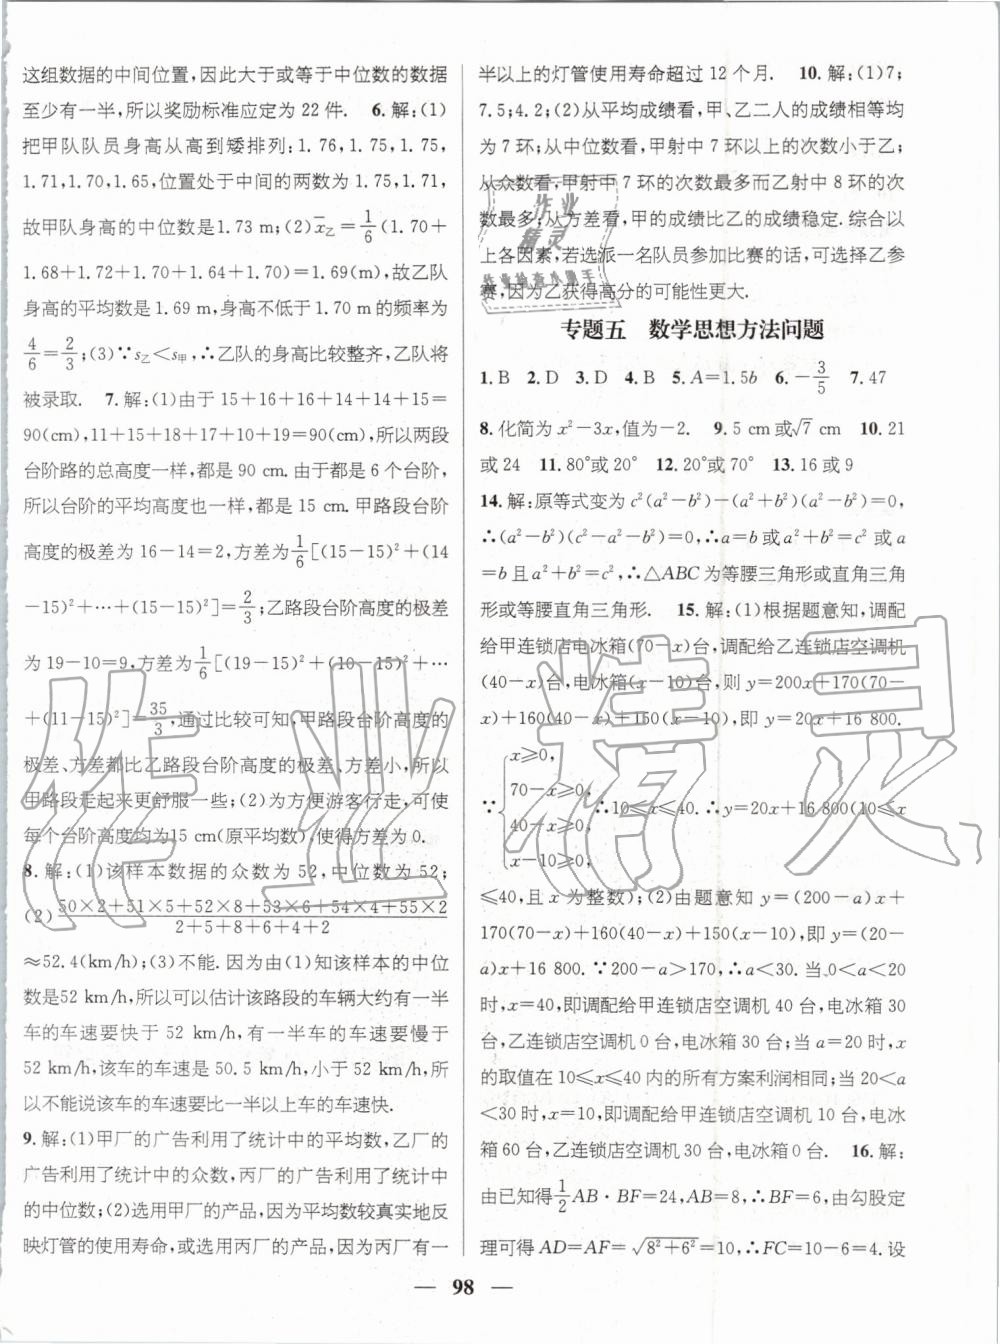 这组数据的中间位置,因此大于或等于中位数的数据
至少有一半,所以奖励标准应定为 22 件. 6.解:(1)
把甲队队员身高从高到矮排列:1.76,1.75,1.75,
1.71,1.70,1.65,位置处于中间的两数为 1.75,1.71,
故甲队身高的中位数是 1.73 m;(2)x̄乙=1/6(1.70+
1.68+1.72+1.70+1.64+1.70)=1.69(m),故乙队
身高的平均数是 1.69 m,身高不低于 1.70 m 的频率为
4/6=2/3;(3)∵s乙<s甲,∴乙队的身高比较整齐,乙队将
被录取. 7.解:(1)由于 15+16+16+14+14+15=
90(cm),11+15+18+17+10+19=90(cm),所以两段
台阶路的总高度一样,都是 90 cm.由于都是 6 个台阶,
所以台阶的平均高度也一样,都是 15 cm.甲路段台阶
高度的极差为 16-14=2,方差为1/6[(15-15)²+(14
-15)²+…+(15-15)²]=2/3;乙路段台阶高度的极差
为 19-10=9,方差为1/6[(19-15)²+(10-15)²+…
+(11-15)²]=35/3,通过比较可知,甲路段台阶高度的
极差、方差都比乙路段台阶高度的极差、方差小,所以
甲路段走起来更舒服一些;(2)为方便游客行走,可使
每个台阶高度均为15 cm(原平均数),使得方差为 0.
8.解:(1)该样本数据的众数为 52,中位数为 52;
(2)(50×2+51×5+52×8+53×6+54×4+55×2)/(2+5+8+6+4+2)
≈52.4(km/h);(3)不能.因为由(1)知该样本的中位
数是52 km/h,所以可以估计该路段的车辆大约有一半
车的车速要快于 52 km/h,有一半车的车速要慢于
52 km/h,该车的车速是 50.5 km/h,小于 52 km/h,所
以不能说该车的车速要比一半以上车的车速快.
9.解:(1)甲厂的广告利用了统计中的平均数,乙厂的
广告利用了统计中的众数,丙厂的广告利用了统计中
的中位数;(2)选用甲厂的产品,因为平均数较真实地反
映灯管的使用寿命,或选用丙厂的产品,因为丙厂有一
半以上的灯管使用寿命超过 12 个月. 10.解:(1)7;
7.5;4.2;(2)从平均成绩看,甲、乙二人的成绩相等均
为 7 环;从中位数看,甲射中 7 环以上的次数小于乙;
从众数看,甲射中 7 环的次数最多而乙射中 8 环的次
数最多;从方差看,甲的成绩比乙的成绩稳定.综合以
上各因素,若选派一名队员参加比赛的话,可选择乙参
赛,因为乙获得高分的可能性更大.
专题五 数学思想方法问题
1.B 2.D 3.D 4.B 5.A=1.5b 6.-3/5 7.47
8.化简为 x²-3x,值为-2. 9.5 cm或√7 cm 10.21
或 24 11.80°或 20° 12.20°或 70° 13.16 或 9
14.解:原等式变为 c²(a²-b²)-(a²+b²)(a²-b²)=0,
∴(a²-b²)(c²-a²-b²)=0,∴a=b或a²+b²=c²或a
=b且a²+b²=c²,∴△ABC为等腰三角形或直角三角
形或等腰直角三角形. 15.解:(1)根据题意知,调配
给甲连锁店电冰箱(70-x)台,调配给乙连锁店空调机
(40-x)台,电冰箱(x-10)台,则 y=200x+170(70-
x)+160(40-x)+150(x-10),即 y=20x+16 800.
∵{x≥0, 70-x≥0, 40-x≥0, x-10≥0, ∴10≤x≤40.∴y=20x+16 800(10≤x
≤40,且 x 为整数);(2)由题意知 y=(200-a)x+
170(70-x)+160(40-x)+150(x-10),即 y=(20-
a)x+16 800.∵200-a>170,∴a<30.当 0<a<20
时,x=40,即调配给甲连锁店空调机 40 台,电冰箱 30
台,乙连锁店空调机 0 台,电冰箱 30 台;当 a=20 时,x
的取值在 10≤x≤40 内的所有方案利润相同;当 20<a
<30 时,x=10,即调配给甲连锁店空调机 10 台,电冰
箱 60 台,乙连锁店空调机 30 台,电冰箱 0 台. 16.解:
由已知得1/2AB·BF=24,AB=8,∴BF=6,由勾股定
理可得 AD=AF=√(8²+6²)=10,∴FC=10-6=4.设
— 98 —
作业精灵
作业
精灵
作业检查小助手